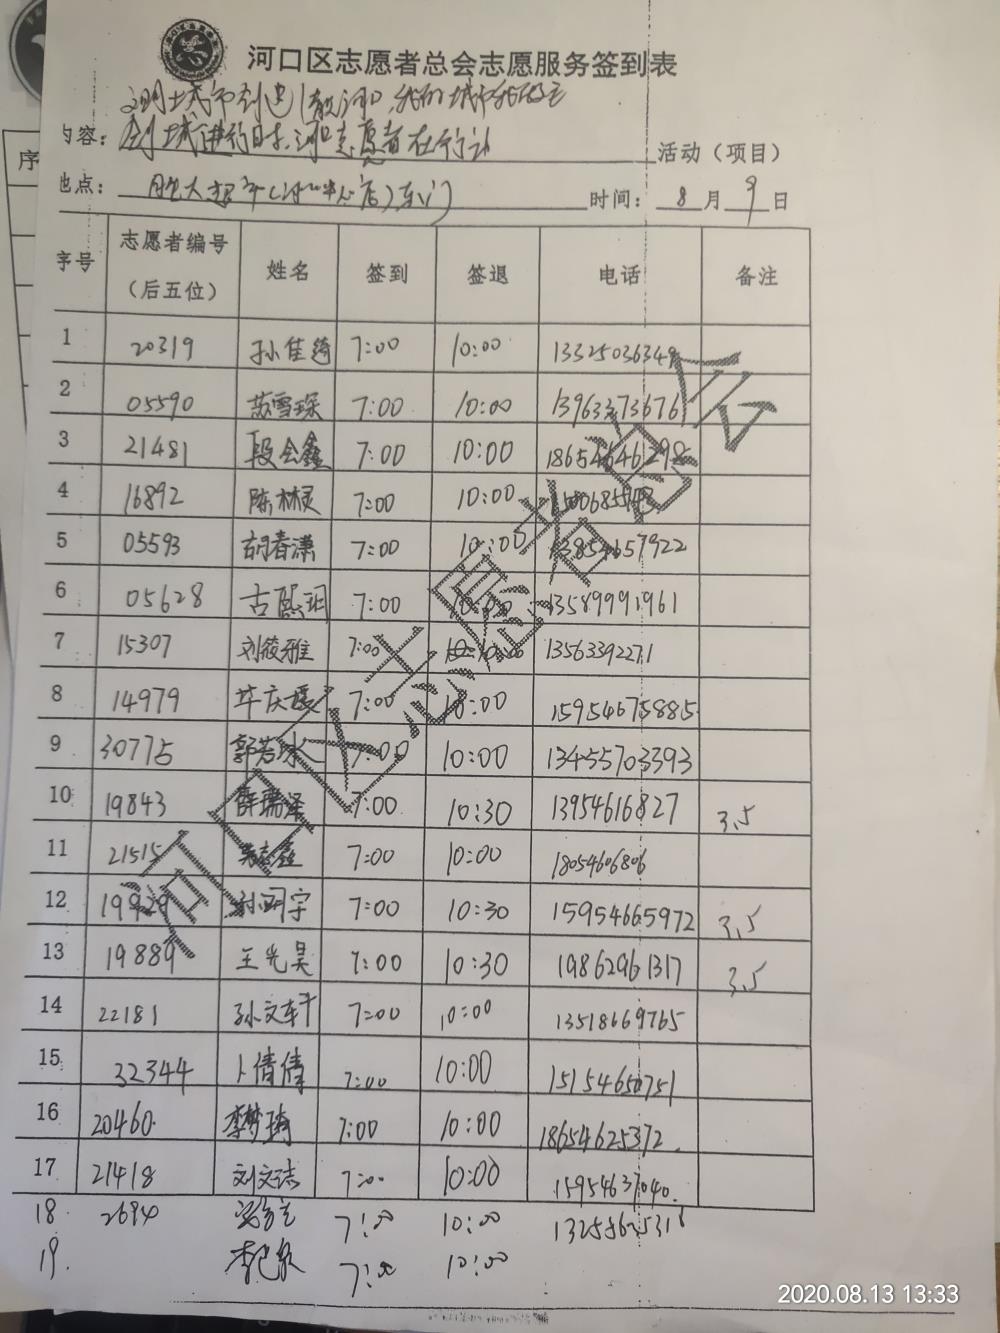 河口区志愿者总会志愿服务签到表
文明城市创建
内容： 创城进行时 河口志愿者在行动 活动（项目）
地点： 东门 时间： 8 月 9 日
序号 志愿者编号（后五位） 姓名 签到 签退 电话 备注
1 20319 孙佳绮 7:00 10:00 13325036349
2 05590 苏雪琛 7:00 10:00 13963373676
3 21481 段会鑫 7:00 10:00 18654646298
4 16892 陈林灵 7:00 10:00
5 05593 胡春潇 7:00 10:00 13854657922
6 05628 古熙玥 7:00 10:00 13589991961
7 15307 刘筱雅 7:00 10:00 13563392271
8 14979 7:00 10:00 15954675885
9 30775 郭若冰 7:00 10:00 13455703393
10 19843 薛瑞泽 7:00 10:30 13954616827 3.5
11 21515 7:00 10:00 18054606806
12 19929 孙明宇 7:00 10:30 15954665972 3.5
13 19889 王光昊 7:00 10:30 19862961317 3.5
14 22181 孙文轩 7:00 10:00 13518669765
15 32344 卜倩倩 7:00 10:00 15154650751
16 20460 李梦琦 7:00 10:00 18654625372
17 21418 刘文洁 7:00 10:00 15954637040
18 2694 7:00 10:00
19. 7:00 10:00
河口区志愿者总会
2020.08.13 13:33